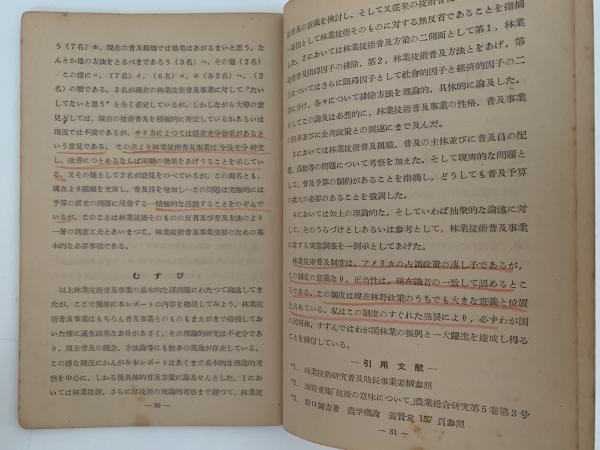 う(7名)ホ,現在の普及組織では効果はあがるまいと思う,な
んとか他の方法をとるべきであろう(3名)へ,その他(2名)
この様に
現在の林業技術普及事業に対して“たい
してないと思う”と全く否定しているが,しかしながら大勢の意
見としては,現在の技術普及を積極的に肯定しているかあるいは
現状では不満であるが,やり方によつては結束充分効果があると
いう意見である。この点より林業技術普及事業は今後充分研究
し,改善につとめるならば所期の効果をあげうることを示してい
る。又その他として2名が意見をのべているが,この両名とも,
現在より組織を充実し,普及員を増加し―この問題は究極的には
予算の拡充の問題に帰着する―積極的な活動することをのぞんで
いるが,このことは林業技術そのものの反省及び普及方法のより
一層の創意工夫とあいまつて,林業技術普及事業発展のための基
本的な必要事項である。
むすび
以上林業技術普及事業の基本的な諸問題にわたつて論述してき
たが,ここで簡単に本レポートの内容を概括してみよう。林業技
術普及事業はもちろん普及事業そのものもまえがきで指摘してお
いた様に誕生以来なお日があさく,その理論的研究は不充分であ
り,現在普及の概念,方法論等にも数多の異論が存在している。
この様な現況にかんがみ本レポートはあくまで基本的な理論的考
察を中心に,しかる後具体的普及方策に論及せんとした。1にお
いては林業技術,さらには技術の理論的考察まで遡つて,林業技
― 30 ―
術普及の意義を検討し,そして又従来の技術普
一要因として林業技術そのものに対する無反省であることを指摘
した。2においては林業技術普及方策の二側面として第1,林業
技術普及阻碍因子の排除,第2,林業技術普及方法とをあげ,第
1についてはさらに阻碍因子として社会的因子と経済的因子の二
者に分け,各々について排除方法を理論的,具体的に論及した。
そしてこの論及は必然的に,林業技術普及事業の性格,普及事業
の限界並びに公共政策との関連にまで及んだ。
3においては林業技術普及組織,普及の主体並びに普及員の配
置,員数等の問題について考察を加えた。そして現実的な問題と
して,普及予算の制約があることを指摘し,どうしても普及予算
の拡大の必要のあることを強調した。
4においては如上の理論的な,そしていわば抽象的な論述に対
して,そのうらづけとしあるいは参考として,林業技術普及事業
に対する実態調査を一例示としてあげた。
林業技術普及制度は,アメリカの占領政策の落し子であるが,
この制度の意義なり,正当性は,現在識者の一致して認めるとこ
ろである。この制度は現在林野政策のうちでも大きな意義と位置
を占めている。私はこの制度のすぐれた発展により,必ずわが国
の民有林,すすんではわが国林業の振興と一大躍進を達成し得る
ことを確信している。
― 引用文献 ―
*1. 林業技術研究普及助長事業要綱参照
*2. 重綱「技術の意味について」農業総合研究第5巻第3号
*3. 野口彌吉著 農学概論 養賢堂 157頁参照
― 31 ―